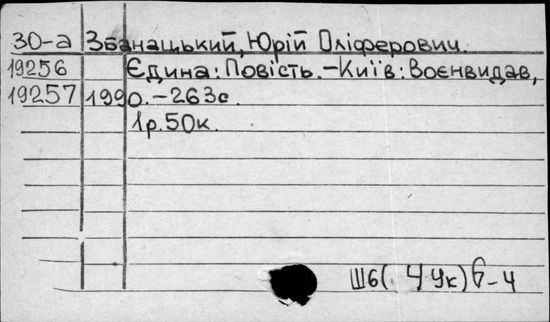 30-а Збанацький, Юрій Оліферович.
19256 Єдина: Повість. – Київ: Воєнвидав,
19257 1990. – 263с.
1р. 50к.
Ш6(4Ук)6-4